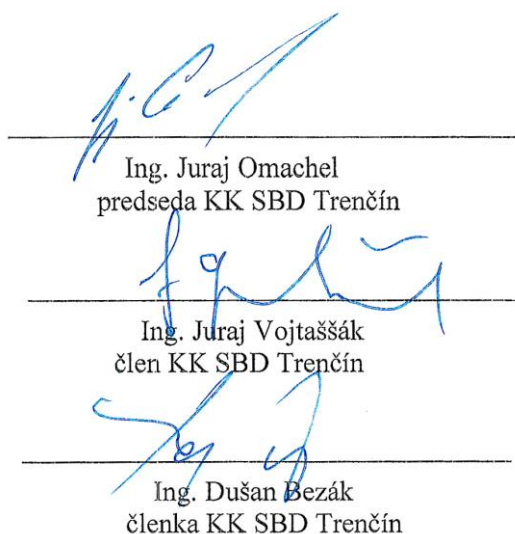 Ing. Juraj Omachel
predseda KK SBD Trenčín
Ing. Juraj Vojtaššák
člen KK SBD Trenčín
Ing. Dušan Bezák
členka KK SBD Trenčín